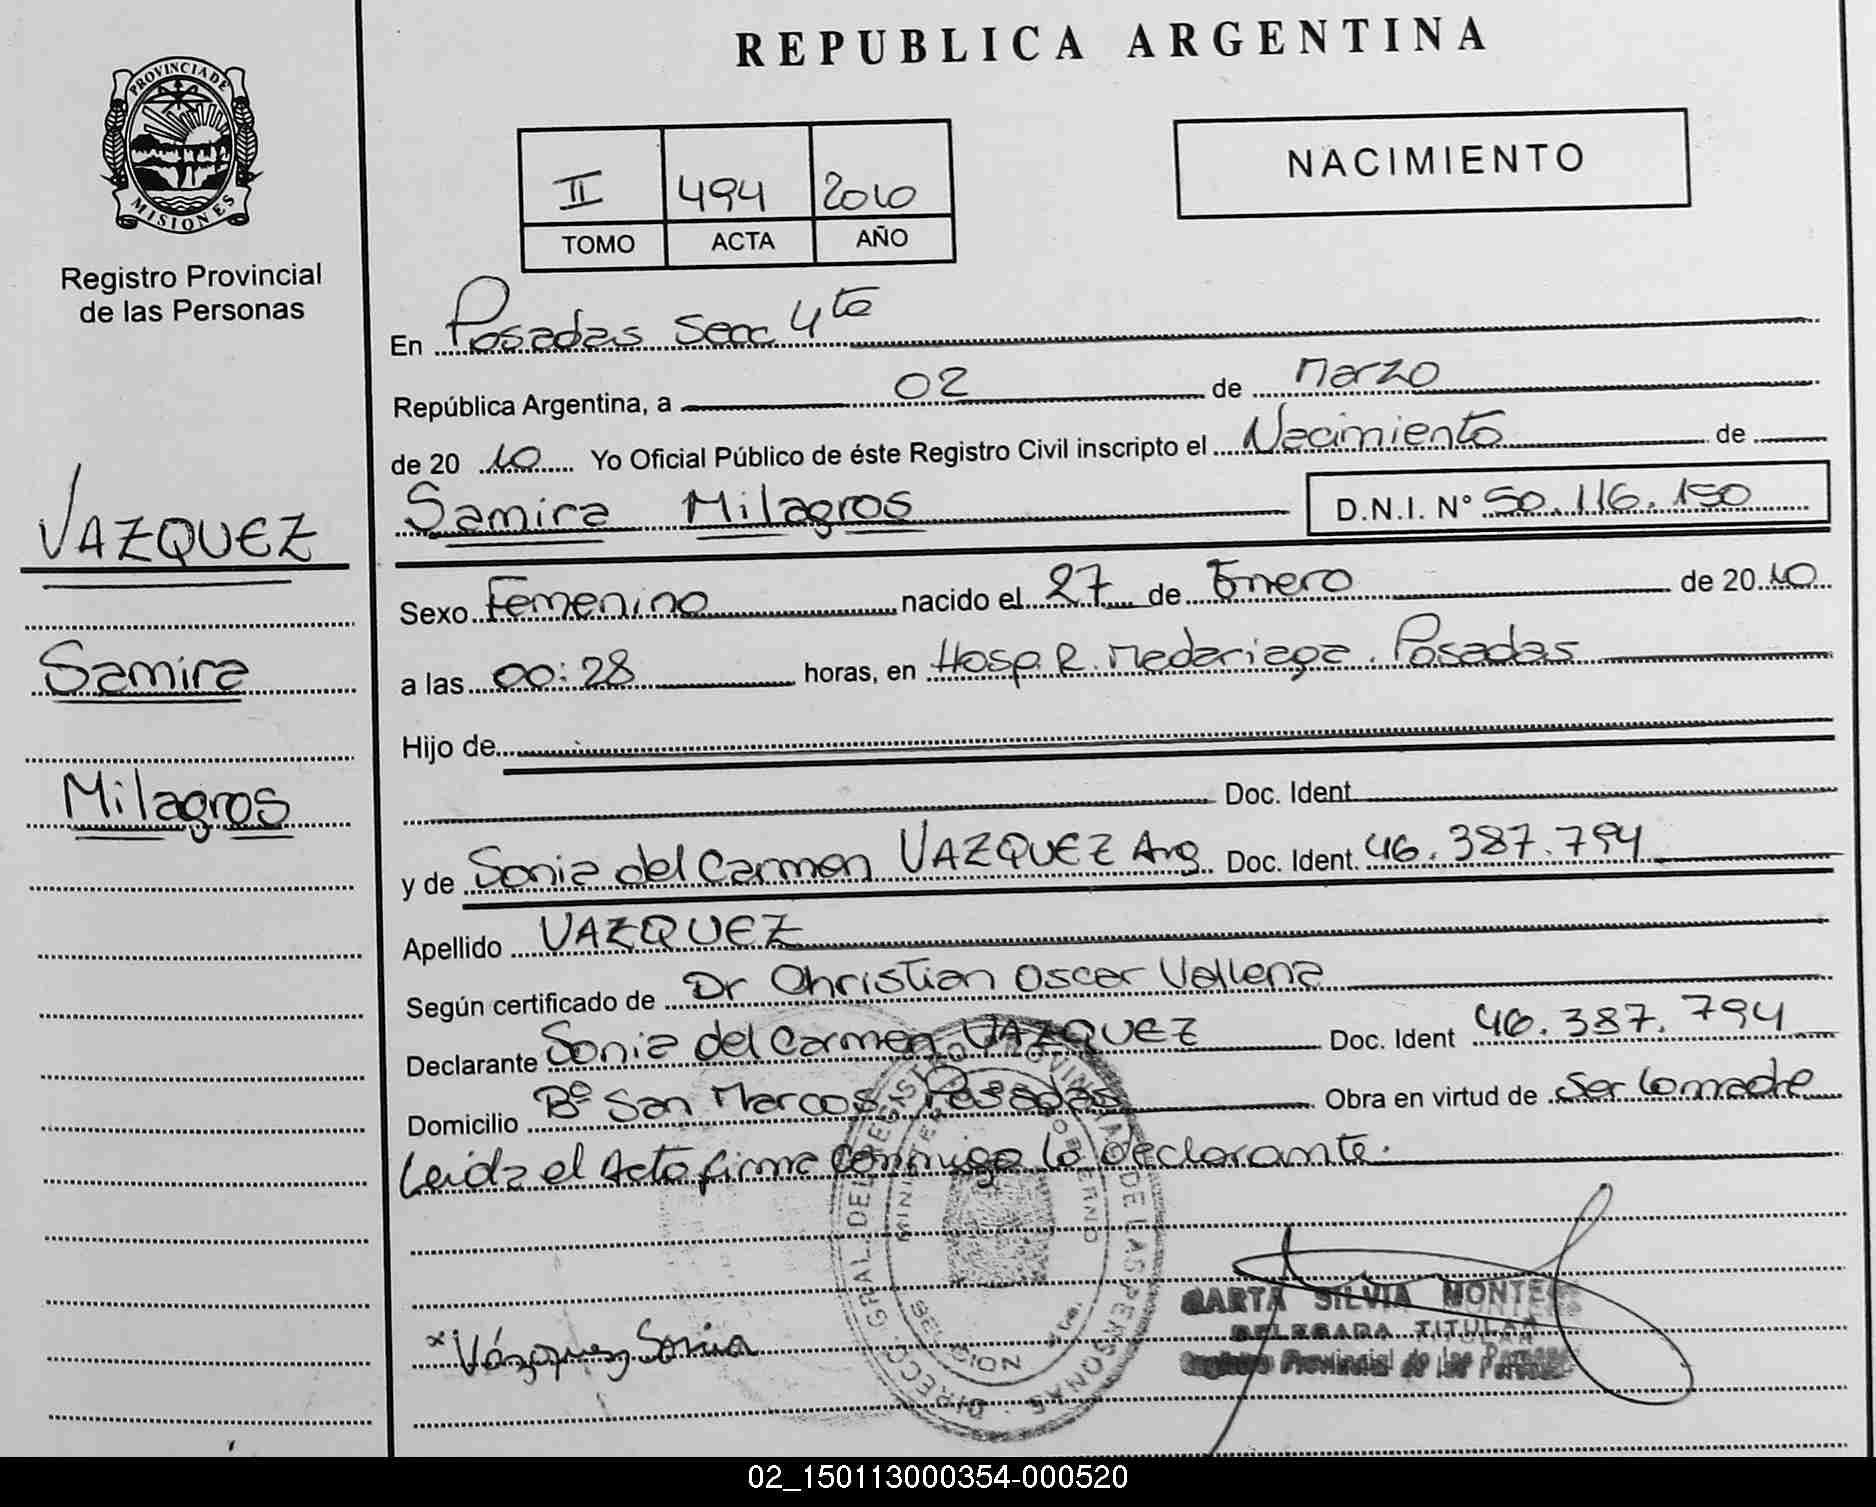 REPUBLICA ARGENTINA
PROVINCIA DE
MISIONES
Registro Provincial
de las Personas
NACIMIENTO
II 494 2010
TOMO ACTA AÑO
En Posadas Secc 4ta
República Argentina, a 02 de Marzo
de 20 10 Yo Oficial Público de éste Registro Civil inscripto el Nacimiento de
Samira Milagros D.N.I. N° 50.116.150
VAZQUEZ
Samira
Milagros
Sexo Femenino nacido el 27 de Enero de 20 10
a las 00:28 horas, en Hosp. R. Madariaga. Posadas
Hijo de
Doc. Ident.
y de Sonia del Carmen VAZQUEZ Arg. Doc. Ident. 46.387.794
Apellido VAZQUEZ
Según certificado de Dr Christian Oscar Vallena
Declarante Sonia del Carmen VAZQUEZ Doc. Ident 46.387.794
Domicilio Bº San Marcos - Posadas Obra en virtud de Ser la madre
Leida el Acta firma conmigo la declarante.
MINISTERIO GOBIERNO
x Vázquez Sonia
SILVIA MONTE
DELEGADA TITULAR
Registro Provincial de las Personas
02_150113000354-000520